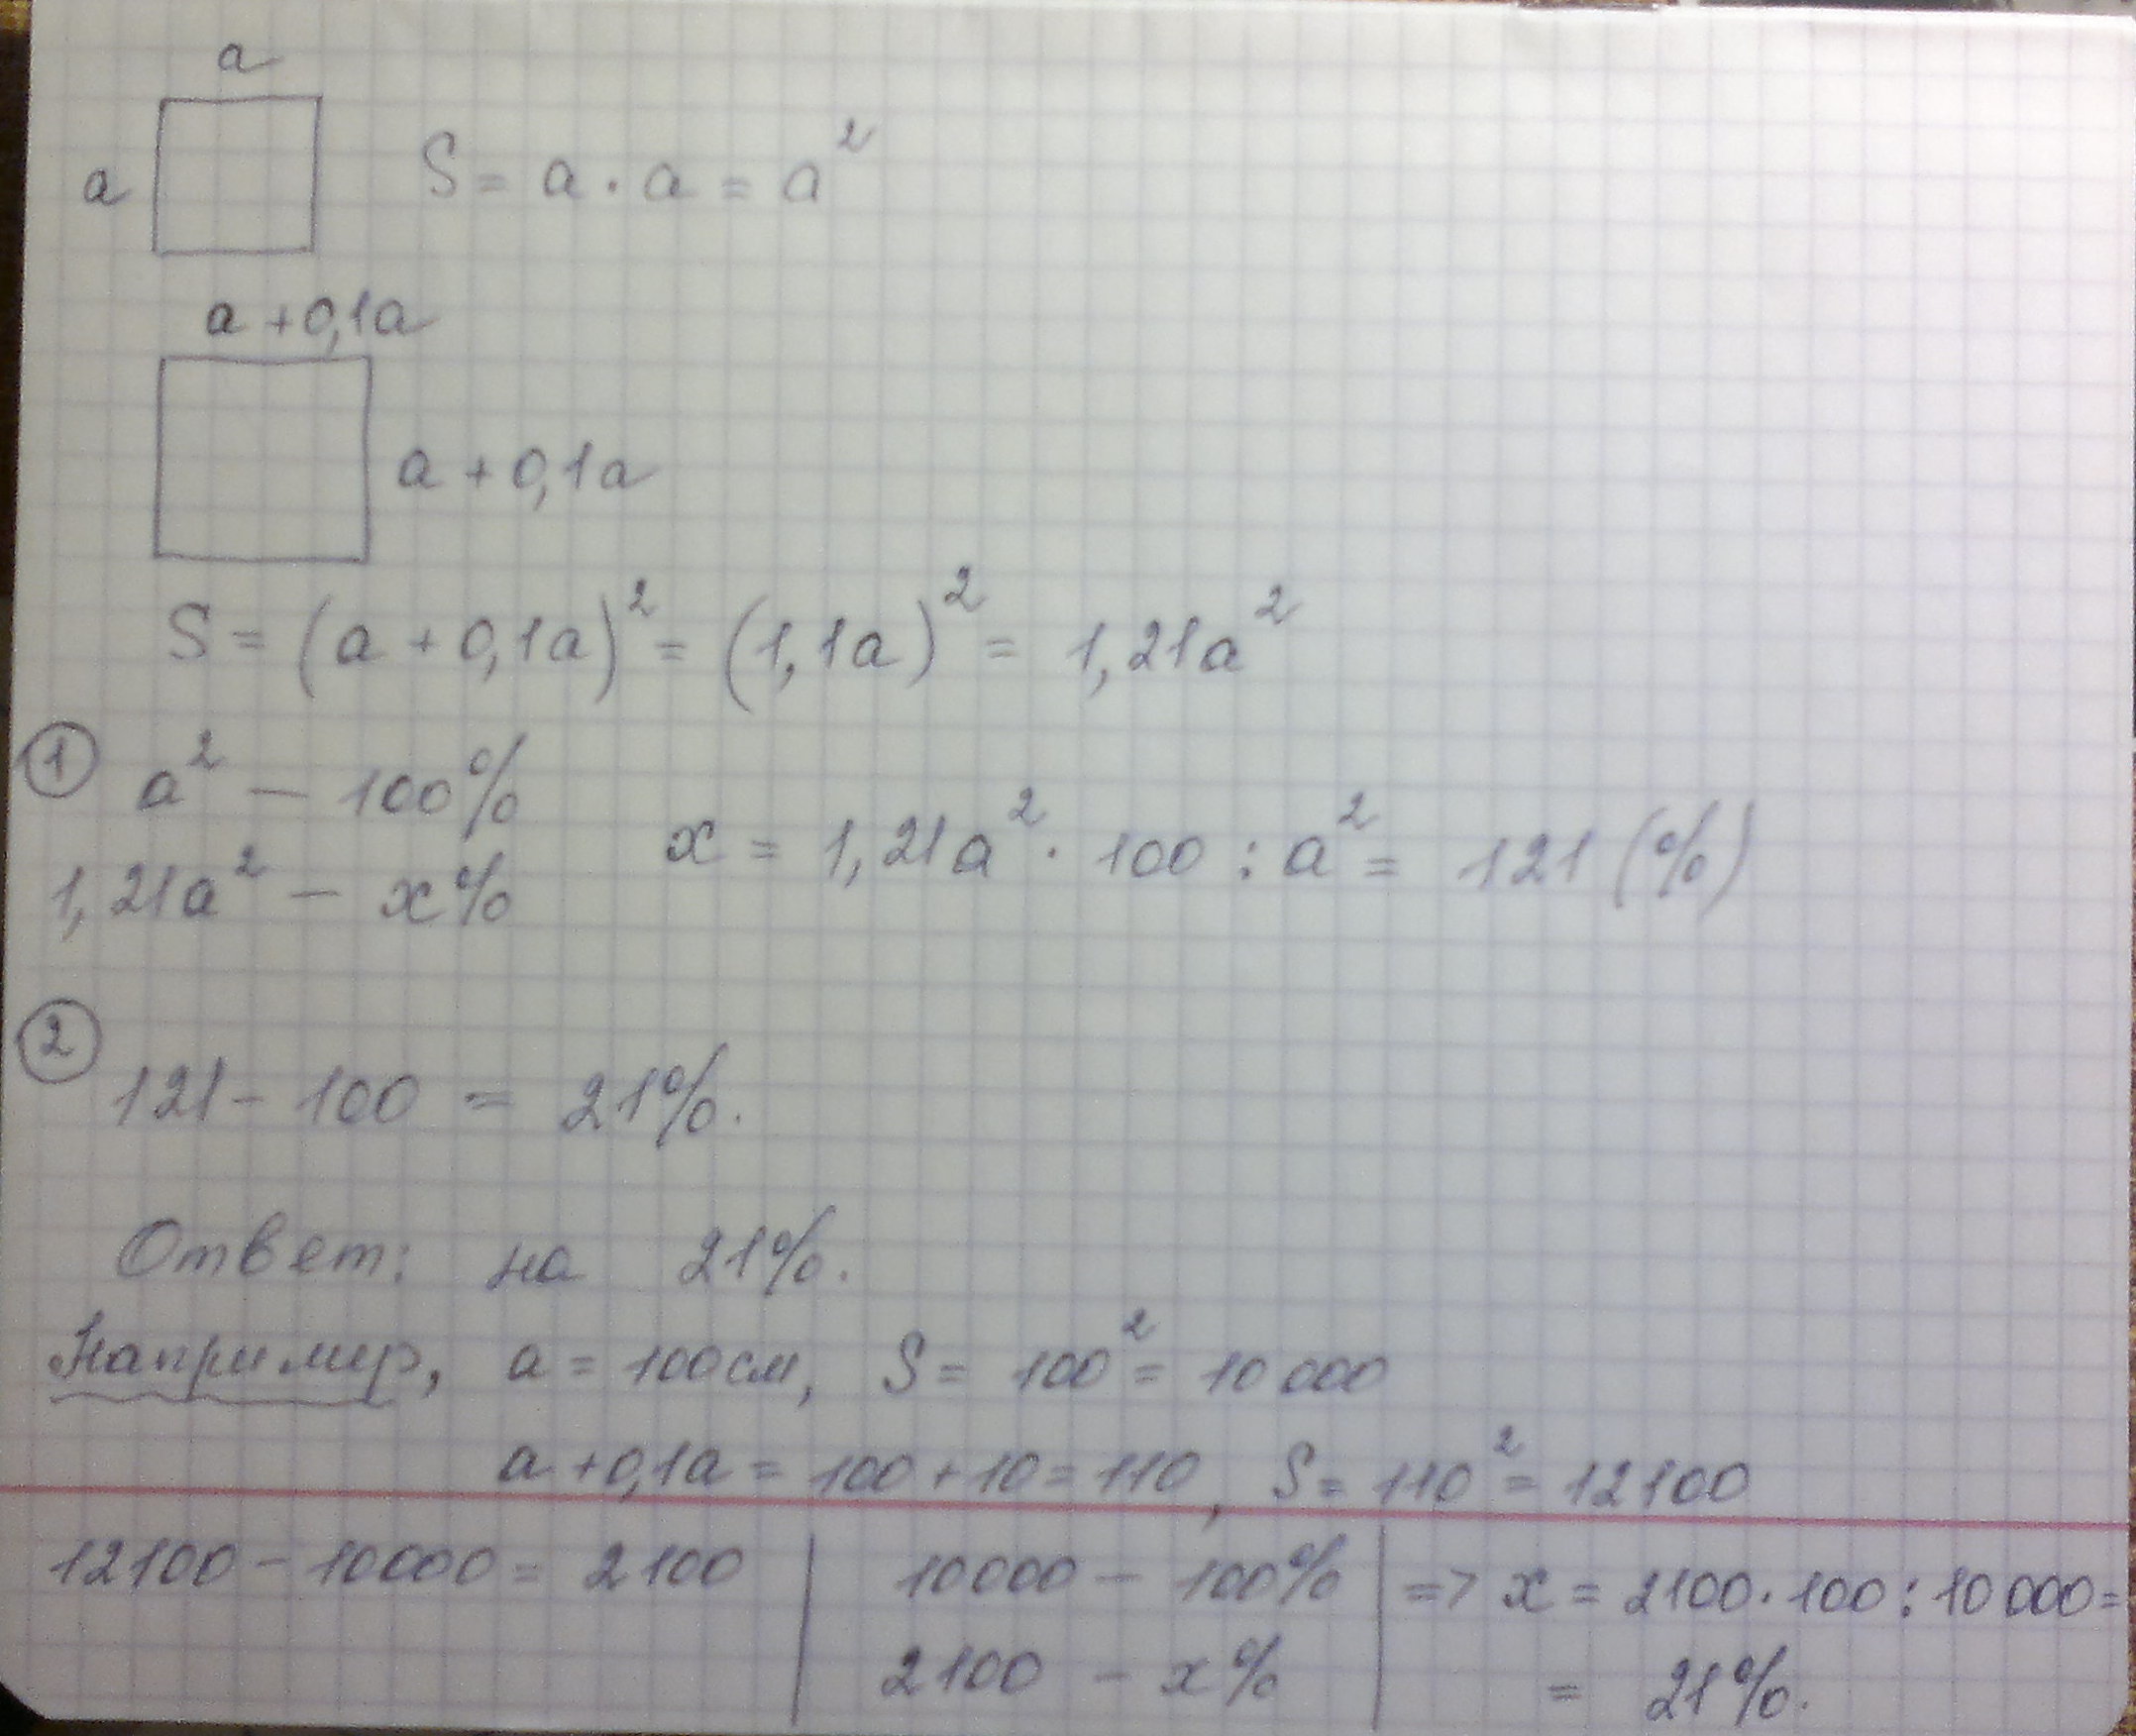 a
a
S = a · a = a²
a + 0,1a
a + 0,1a
S = (a + 0,1a)² = (1,1a)² = 1,21a²
① a² – 100%
1,21a² – x%
x = 1,21a² · 100 : a² = 121 (%)
②
121 - 100 = 21%.
Ответ: на 21%.
Например, a = 100 см, S = 100² = 10 000
a + 0,1a = 100 + 10 = 110, S = 110² = 12100
12100 - 10000 = 2100
10000 – 100%
2100 – x%
=> x = 2100 · 100 : 10 000 =
= 21%.